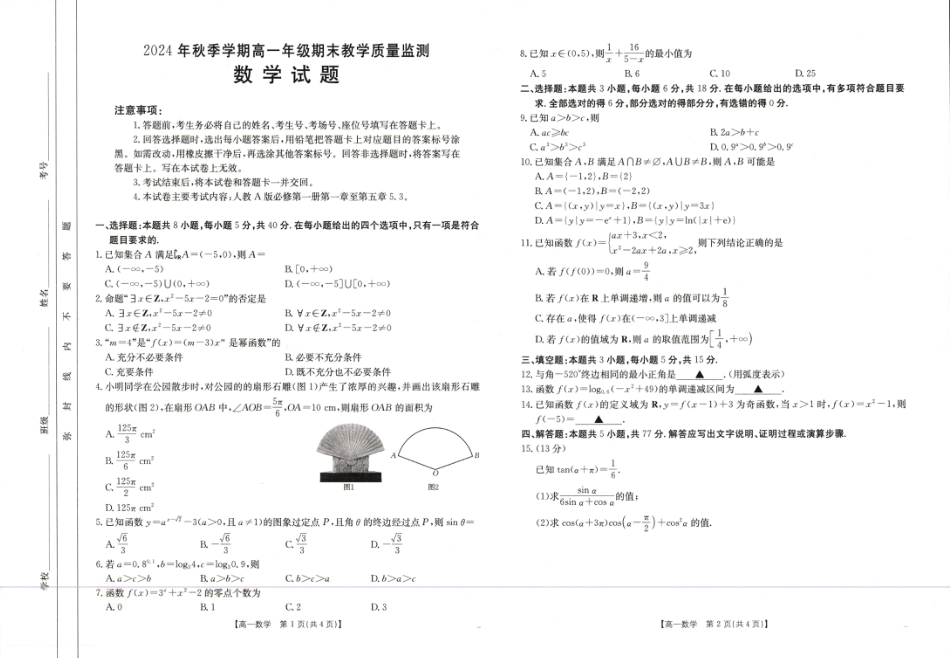 2024 年秋季学期高一年级期末教学质量监测
数 学 试 题
注意事项:
1.答题前,考生务必将自己的姓名、考生号、考场号、座位号填写在答题卡上。
2.回答选择题时,选出每小题答案后,用铅笔把答题卡上对应题目的答案标号涂
黑。如需改动,用橡皮擦干净后,再选涂其他答案标号。回答非选择题时,将答案写在
答题卡上。写在本试卷上无效。
3.考试结束后,将本试卷和答题卡一并交回。
4.本试卷主要考试内容:人教 A 版必修第一册第一章至第五章 5.3。
一、选择题:本题共 8 小题,每小题 5 分,共 40 分.在每小题给出的四个选项中,只有一项是符合
题目要求的.
1.已知集合 A 满足∁RA=(-5,0),则 A=
A.(-∞,-5) B.[0,+∞)
C.(-∞,-5)∪(0,+∞) D.(-∞,-5]∪[0,+∞)
2.命题“∃x∈Z,x²-5x-2=0”的否定是
A.∃x∈Z,x²-5x-2≠0 B.∀x∈Z,x²-5x-2≠0
C.∃x∉Z,x²-5x-2≠0 D.∀x∉Z,x²-5x-2≠0
3.“m=4”是“f(x)=(m-3)xᵐ 是幂函数”的
A.充分不必要条件 B.必要不充分条件
C.充要条件 D.既不充分也不必要条件
4.小明同学在公园散步时,对公园的的扇形石雕(图 1)产生了浓厚的兴趣,并画出该扇形石雕
的形状(图 2),在扇形 OAB 中,∠AOB=5π/6,OA=10 cm,则扇形 OAB 的面积为
A.125π/3 cm²
B.125π/6 cm²
C.125π/2 cm²
D.125π cm²
A B O
图1 图2
5.已知函数 y=a^(x-√2)-3(a>0,且 a≠1)的图象过定点 P,且角 θ 的终边经过点 P,则 sin θ=
A.√6/3 B.-√6/3 C.√3/3 D.-√3/3
6.若 a=0.8^0.1,b=log₃4,c=log₃0.9,则
A.a>c>b B.a>b>c C.b>c>a D.b>a>c
7.函数 f(x)=3ˣ+x²-2 的零点个数为
A.0 B.1 C.2 D.3
【高一数学 第 1 页(共 4 页)】
8.已知 x∈(0,5),则1/x+16/(5-x)的最小值为
A.5 B.6 C.10 D.25
二、选择题:本题共 3 小题,每小题 6 分,共 18 分.在每小题给出的选项中,有多项符合题目要
求.全部选对的得 6 分,部分选对的得部分分,有选错的得 0 分.
9.已知 a>b>c,则
A.ac≥bc B.2a>b+c
C.a³>b³>c³ D.0.9ᵃ>0.9ᵇ>0.9ᶜ
10.已知集合 A,B 满足 A∩B≠∅,A∪B≠B,则 A,B 可能是
A.A={-1,2},B={2}
B.A=(-1,2),B=(-2,2)
C.A={(x,y)|y=x},B={(x,y)|y=3x}
D.A={y|y=-eˣ+1},B={y|y=ln(|x|+e)}
11.已知函数 f(x)={ax+3,x<2, x²-2ax+2a,x≥2, 则下列结论正确的是
A.若 f(f(0))=0,则 a=9/4
B.若 f(x)在 R 上单调递增,则 a 的值可以为1/8
C.存在 a,使得 f(x)在(-∞,3]上单调递减
D.若 f(x)的值域为 R,则 a 的取值范围为[1/4,+∞)
三、填空题:本题共 3 小题,每小题 5 分,共 15 分.
12.与角-520°终边相同的最小正角是 ▲ .(用弧度表示)
13.函数 f(x)=log₀.₄(-x²+49)的单调递减区间为 ▲ .
14.已知函数 f(x)的定义域为 R,y=f(x-1)+3 为奇函数,当 x>1 时,f(x)=x²-1,则
f(-5)= ▲ .
四、解答题:本题共 5 小题,共 77 分.解答应写出文字说明、证明过程或演算步骤.
15.(13 分)
已知 tan(α+π)=1/6.
(1)求sin α/(6sin α+cos α)的值;
(2)求 cos(α+3π)cos(α-π/2)+cos²α 的值.
【高一数学 第 2 页(共 4 页)】
学校
班级
姓名
考号
弥 封 线 内 不 要 答 题